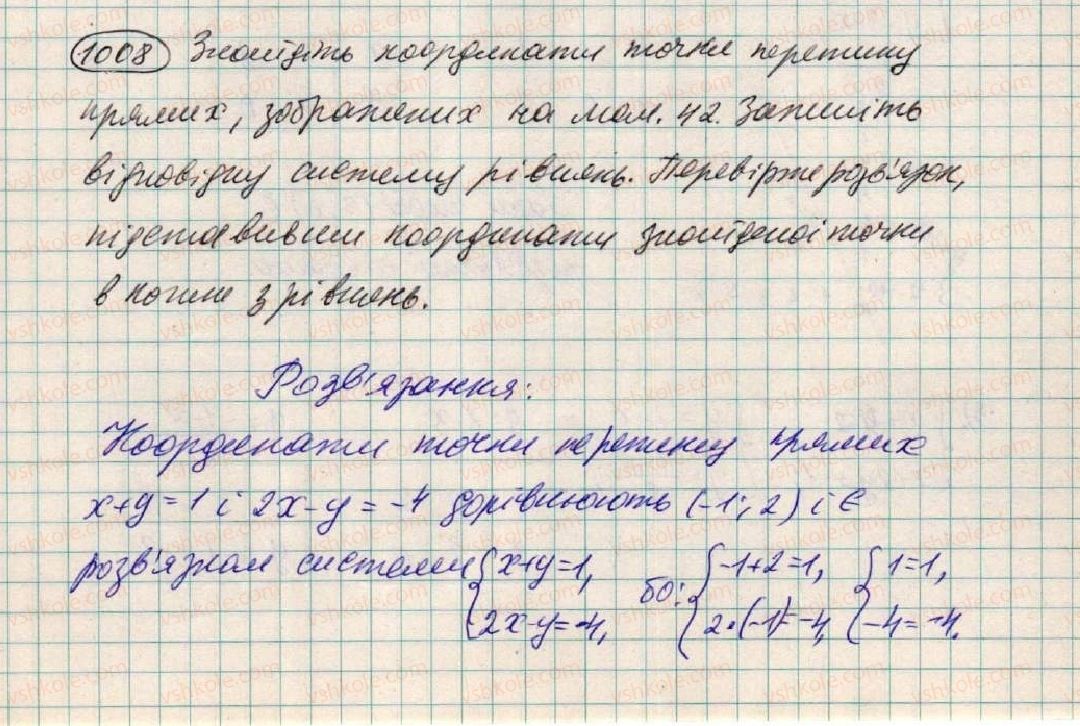 1008 Знайдіть координати точки перетину
прямих, зображених на мал. 42. Запишіть
відповідну систему рівнянь. Перевірте розв'язок,
підставивши координати знайденої точки
в кожне з рівнянь.
Розв'язання:
Координати точки перетину прямих
x+y=1 і 2x-y=-4 дорівнюють (-1; 2) і є
розв'язком системи { x+y=1, бо: { -1+2=1, { 1=1,
2x-y=-4, 2·(-1)=-4, -4=-4.